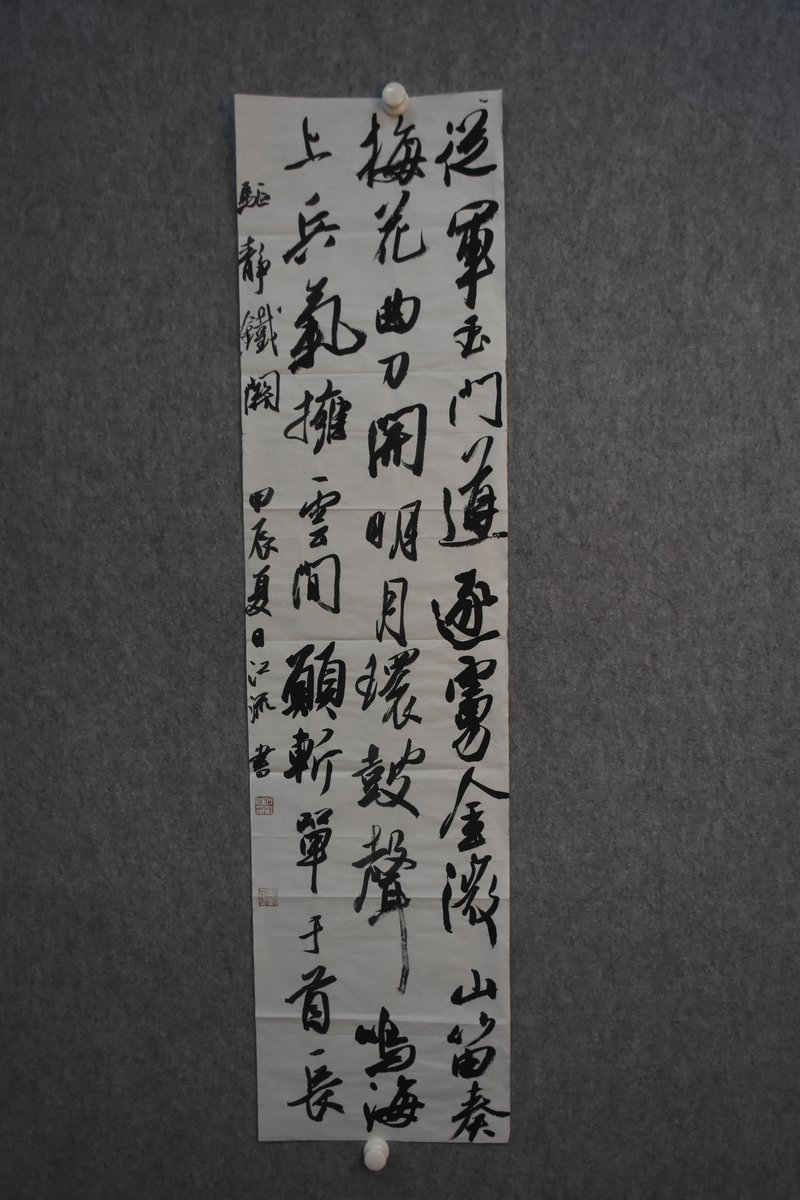 從軍玉門道逐虜金微山笛奏
梅花曲刀開明月環鼓聲鳴海
上兵氣擁雲間願斬單于首長
驅靜鐵關
甲辰夏日江流書